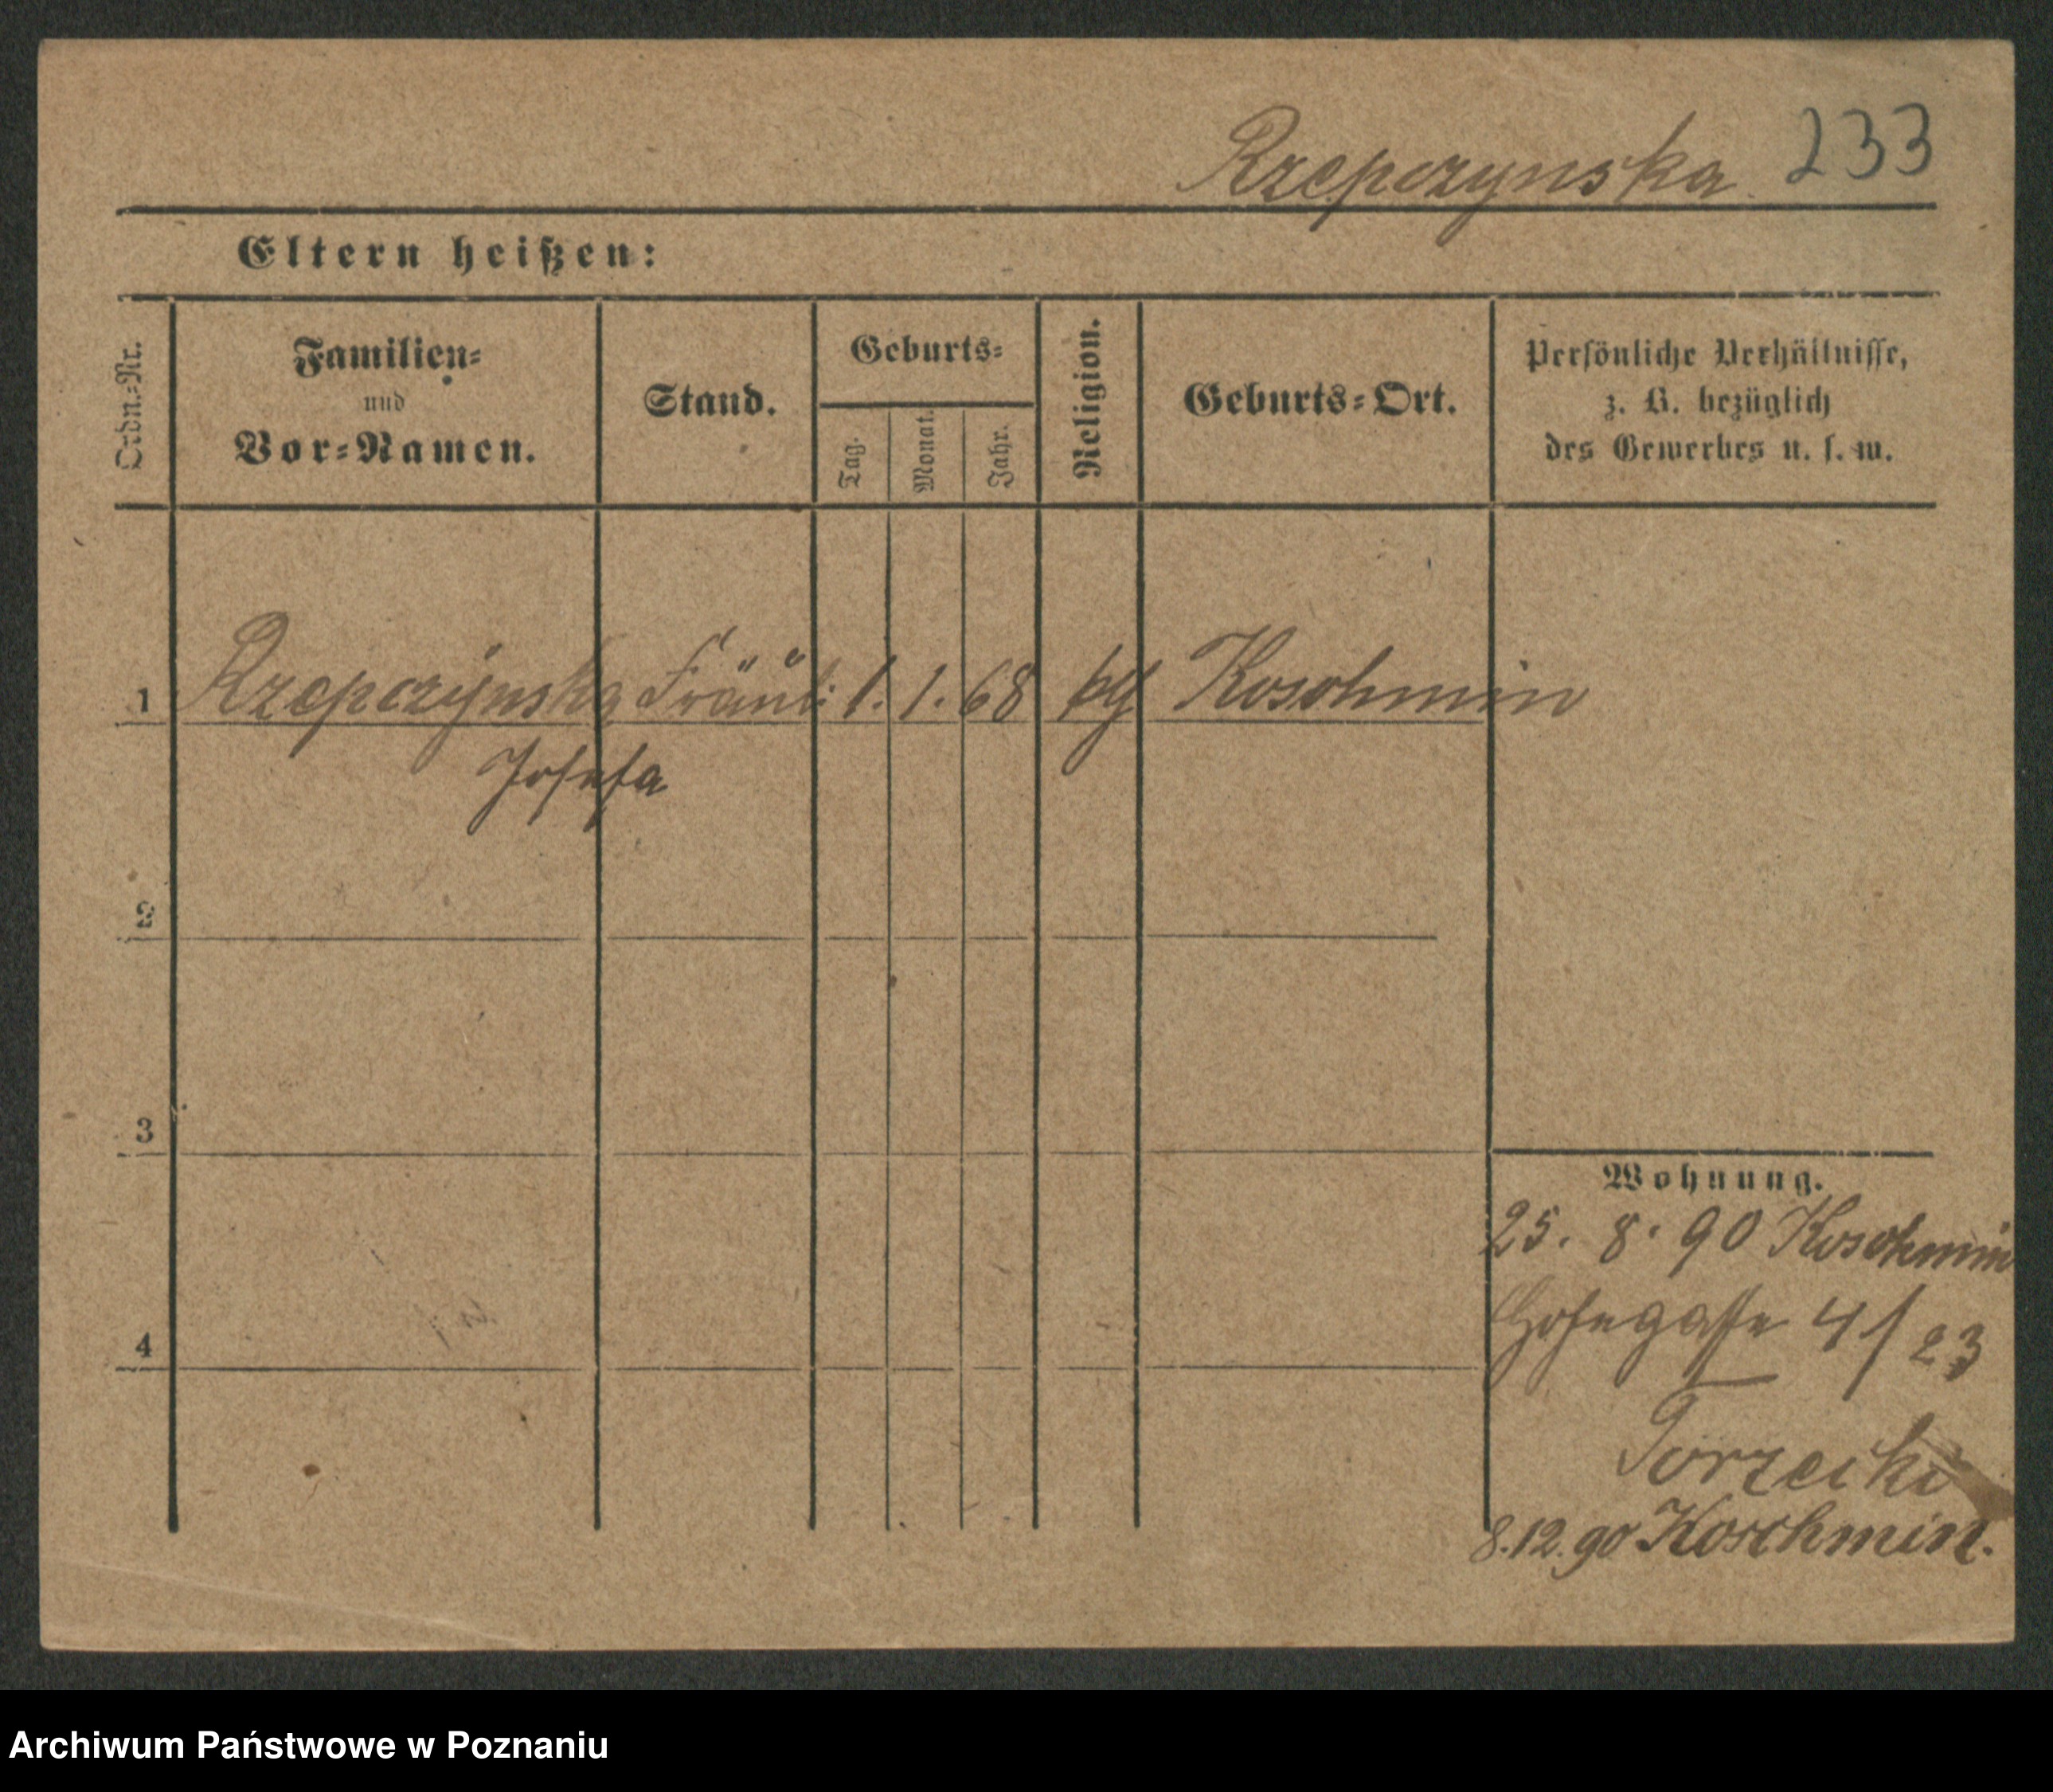 Rzepczynska 233
Eltern heißen:
Ordn.-Nr.
Familien-
und
Vor-Namen.
Stand.
Geburts-
Tag.
Monat.
Jahr.
Religion.
Geburts-Ort.
Persönliche Verhältnisse,
z. B. bezüglich
des Gewerbes u. s. w.
1 Rzepczynska Fräul: 1. 1. 68 Koschmin
Josefa
2
3
Wohnung.
25. 8. 90 Koschmin
4 4/23
Torzecki
8.12.90 Koschmin.
Archiwum Państwowe w Poznaniu